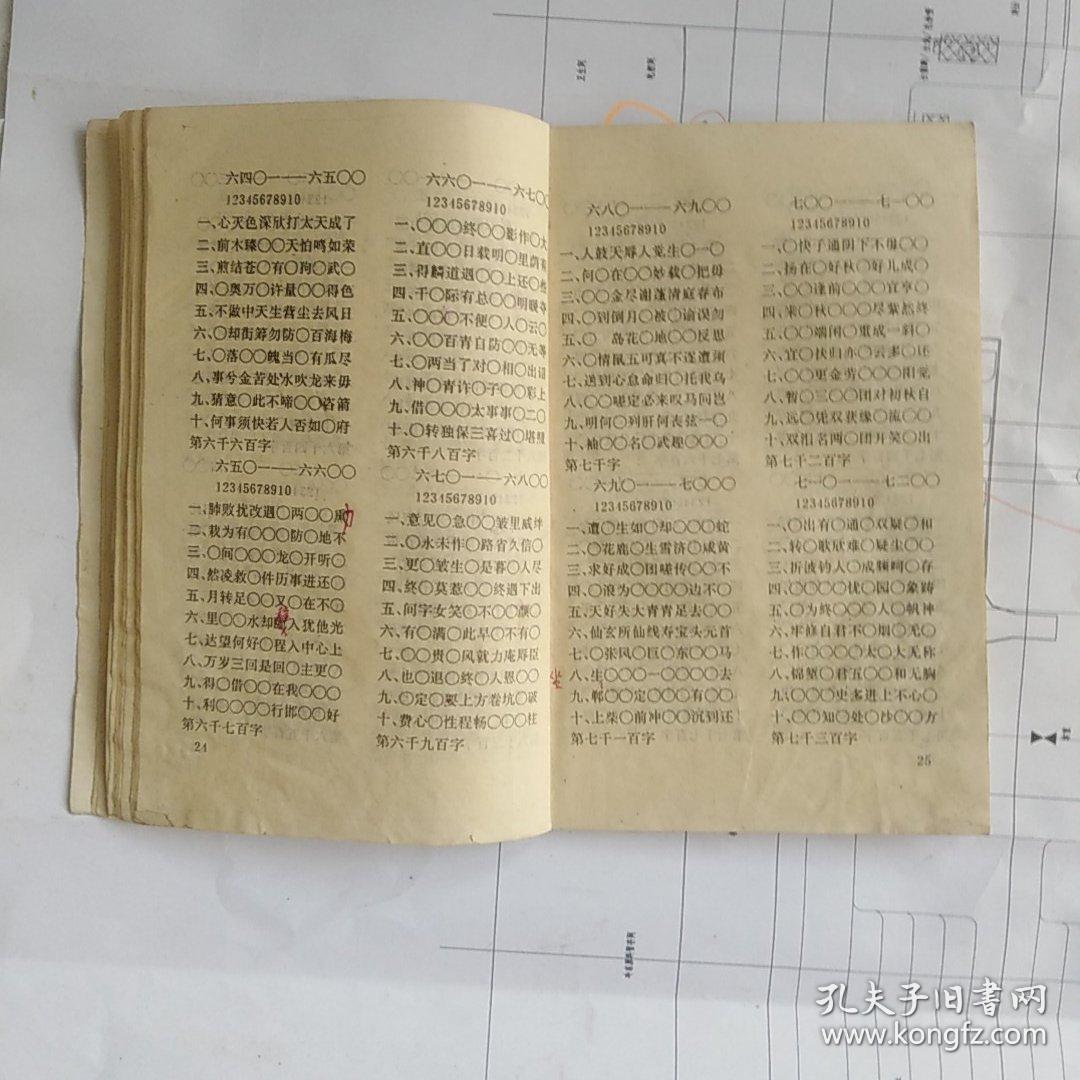 六四〇一——六五〇〇
12345678910
一、心灭色深欣打太天成了
二、前木臻〇〇天怕鸣如荣
三、煎结苍〇有〇狗〇武〇
四、〇奥万〇许量〇〇得色
五、不做中天生营尘去风日
六、〇却街筹勿防〇百海梅
七、〇落〇〇魄当〇有瓜尽
八、事兮金苦处水吹龙来毋
九、猜意〇此不啼〇〇咨箭
十、何事须快若人否如〇府
第六千六百字
六五〇一——六六〇〇
12345678910
一、肺败扰改遇〇两〇〇
二、我为有〇〇〇防〇地不
三、〇问〇〇〇龙〇开听〇
四、然凌救〇件历事进还〇
五、月转足〇〇又〇在不〇
六、里〇〇水却入犹他光
七、达望何好〇程入中心上
八、万岁三回是回〇主更〇
九、得〇借〇〇在我〇〇〇
十、利〇〇〇〇行邯〇〇好
第六千七百字
24
六六〇一——六七〇〇
12345678910
一、〇〇〇终〇〇影作〇大
二、直〇〇日载明〇里荫有
三、得麟道遇〇〇上还〇
四、千〇际有总〇〇明暖夺
五、〇〇〇不便〇人〇云〇
六、〇〇百青自防〇〇无等
七、〇两当了对〇相〇出
八、神〇肯许〇子〇〇彩上
九、借〇〇〇太事事〇二〇
十、〇转独保三喜过〇塔
第六千八百字
六七〇一——六八〇〇
12345678910
一、意见〇急〇〇皱里威坪
二、〇水未作〇路省久信〇
三、更〇皱生〇是暮〇人尽
四、终〇莫惹〇〇终遇下出
五、问字女笑〇不〇〇颜〇
六、有〇满〇此早〇不有〇
七、〇〇贵〇风就力庵辱臣
八、也〇退〇终〇人恩〇〇
九、〇定〇要上方卷坑〇破
十、费心〇性程畅〇〇〇柱
第六千九百字
六八〇一——六九〇〇
12345678910
一、人鼓天辱人觉生〇一〇
二、何〇在〇〇妙载〇把毋
三、〇〇金尽谢蓬清庭春布
四、〇到倒月〇被〇谕误勿
五、〇 岛花〇地〇〇反思
六、〇情鼠五可真不逐遭须
七、送到心意命归〇托我鸟
八、〇〇嗟定必来叹马问岂
九、明何〇列肝何表弦一〇
十、袖〇〇名〇武趣〇〇〇
第七千字
六九〇一——七〇〇〇
12345678910
一、遭〇生如〇却〇〇〇蛇
二、〇花鹿〇生雪济〇咸黄
三、求好成〇团嗟传〇〇不
四、〇浪为〇〇〇〇边不〇
五、天好失大青青足去〇〇
六、仙玄所仙线寿宝头元首
七、〇张风〇巨〇东〇〇马
八、生〇〇〇一〇〇〇〇去
九、郸〇〇定〇〇〇有〇〇
十、上柴〇前冲〇〇沉到还
第七千一百字
七〇〇一——七一〇〇
12345678910
一、〇快子通阴下不毋〇〇
二、扬在〇好秋〇好儿成〇
三、〇〇逢前〇〇〇宜亨〇
四、来〇秋〇〇〇尽紫然终
五、〇〇端闲〇重成一斜〇
六、宜〇快归亦〇云多〇还
七、〇〇更金劳〇〇〇阳觉
八、暂〇三〇〇团对初秋自
九、远〇凭双获缘〇流〇〇
十、双泪名两〇团开笑〇出
第七千二百字
七一〇一——七二〇〇
12345678910
一、〇出有〇通〇双疑〇和
二、转〇歌欣难〇疑尘〇〇
三、折波钓人〇成〇存
四、〇〇〇〇优〇园〇象踌
五、〇为终〇〇〇人〇帆神
六、牢修自君不〇烟〇无〇
七、作〇〇〇〇太〇大无称
八、锦壑〇君五〇〇和无胸
九、〇〇〇史多进上不心〇
十、〇〇知〇处〇沙〇〇方
第七千三百字
25
孔夫子旧书网
www.kongfz.com